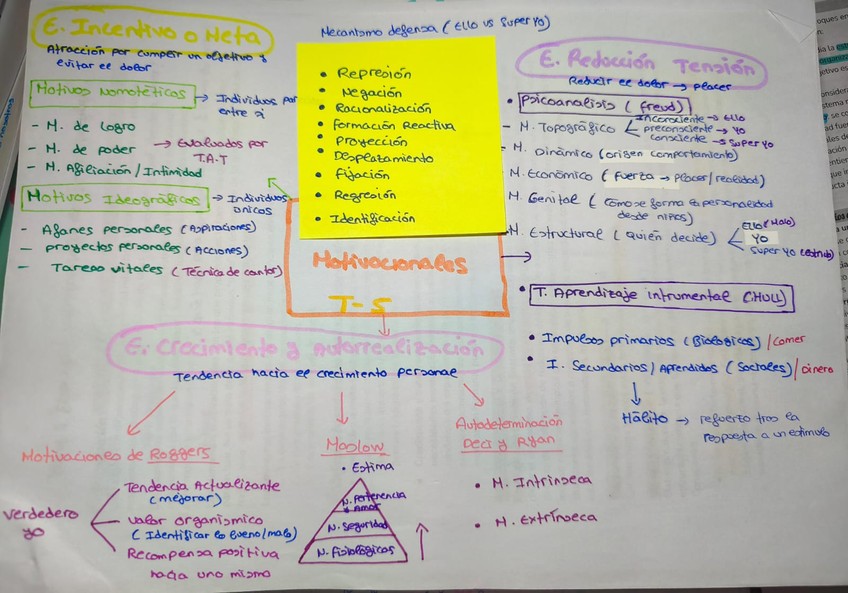 E. Incentivo o Meta
Atracción por cumplir un objetivo y
evitar el dolor
Motivos Nomotéticos → Individuos por
entre si
- M. de logro
- M. de poder → Evaluados por
T.A.T
- M. Afiliación / Intimidad
Motivos Ideográficos → Individuos
únicos
- Afanes personales (Aspiraciones)
- proyectos personales (Acciones)
- Tareas vitales (Técnica de cantor)
Mecanismo defensa (Ello vs Super yo)
• Represión
• Negación
• Racionalización
• Formación Reactiva
• Proyección
• Desplazamiento
• Fijación
• Regresión
• Identificación
Motivacionales
T-5
E. Redacción Tensión
Reducir el dolor → placer
• Psicoanalisis (Freud)
- M. Topográfico
inconsciente → Ello
preconsciente → yo
consciente → Super yo
- M. Dinámico (origen comportamiento)
M. Económico (Fuerza → Placer/realidad)
M. Genital (Como se forma la personalidad
desde niños)
- M. Estructural (Quién decide)
Ello (Malo)
yo
Super yo
• T. Aprendizaje intrumental (HULL)
• Impulsos primarios (Biologicos) / Comer
• I. Secundarios / Aprendidos (Sociales) / Dinero
Hábito → refuerzo tras la
respuesta a un estimulo
E. Crecimiento y Autorrealización
Tendencia hacia el crecimiento personal
Motivaciones de Roggers
verdedero
yo
Tendencia Actualizante
(mejorar)
valor organismico
(Identificar lo bueno/malo)
Recompensa positiva
hacia uno mismo
Maslow
• Estima
N. Pertenencia
y Amor
N. Seguridad
N. Fisiológicas
Autodeterminación
Deci y Ryan
• M. Intrinseca
• M. Extrínseca